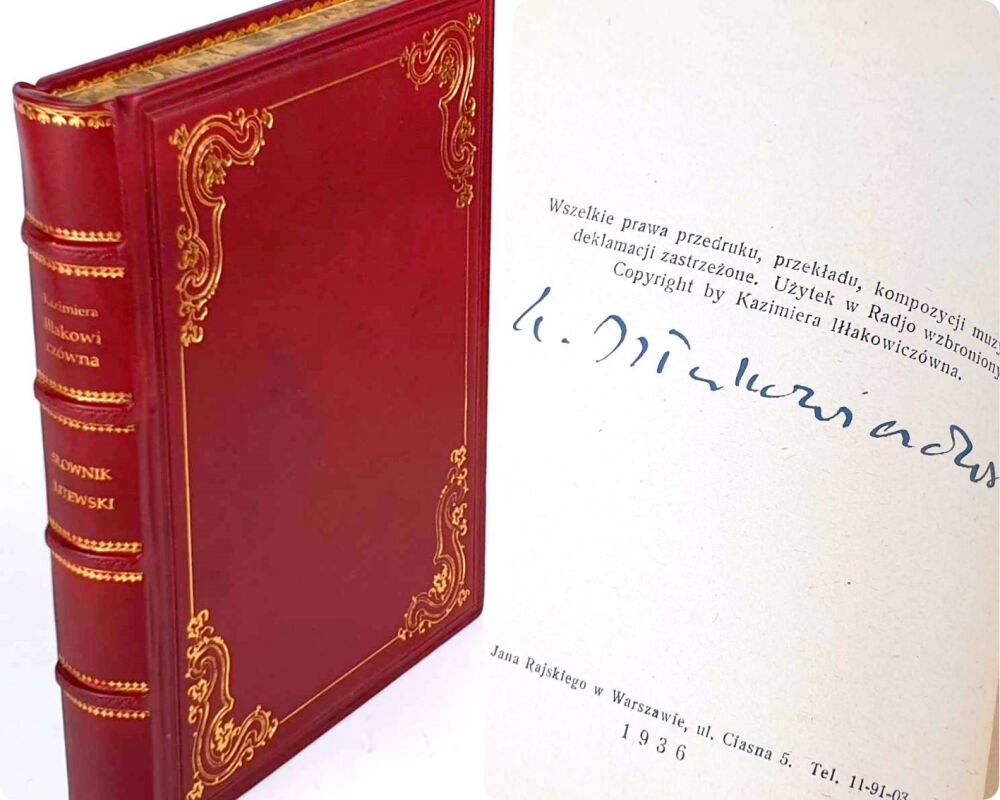 Kazimiera
Iłłakowi
czówna
SŁOWNIK
LITEWSKI
Wszelkie prawa przedruku, przekładu, kompozycji muzy
deklamacji zastrzeżone. Użytek w Radjo wzbroniony
Copyright by Kazimiera Iłłakowiczówna.
Jana Rajskiego w Warszawie, ul. Ciasna 5. Tel. 11-91-03
1936